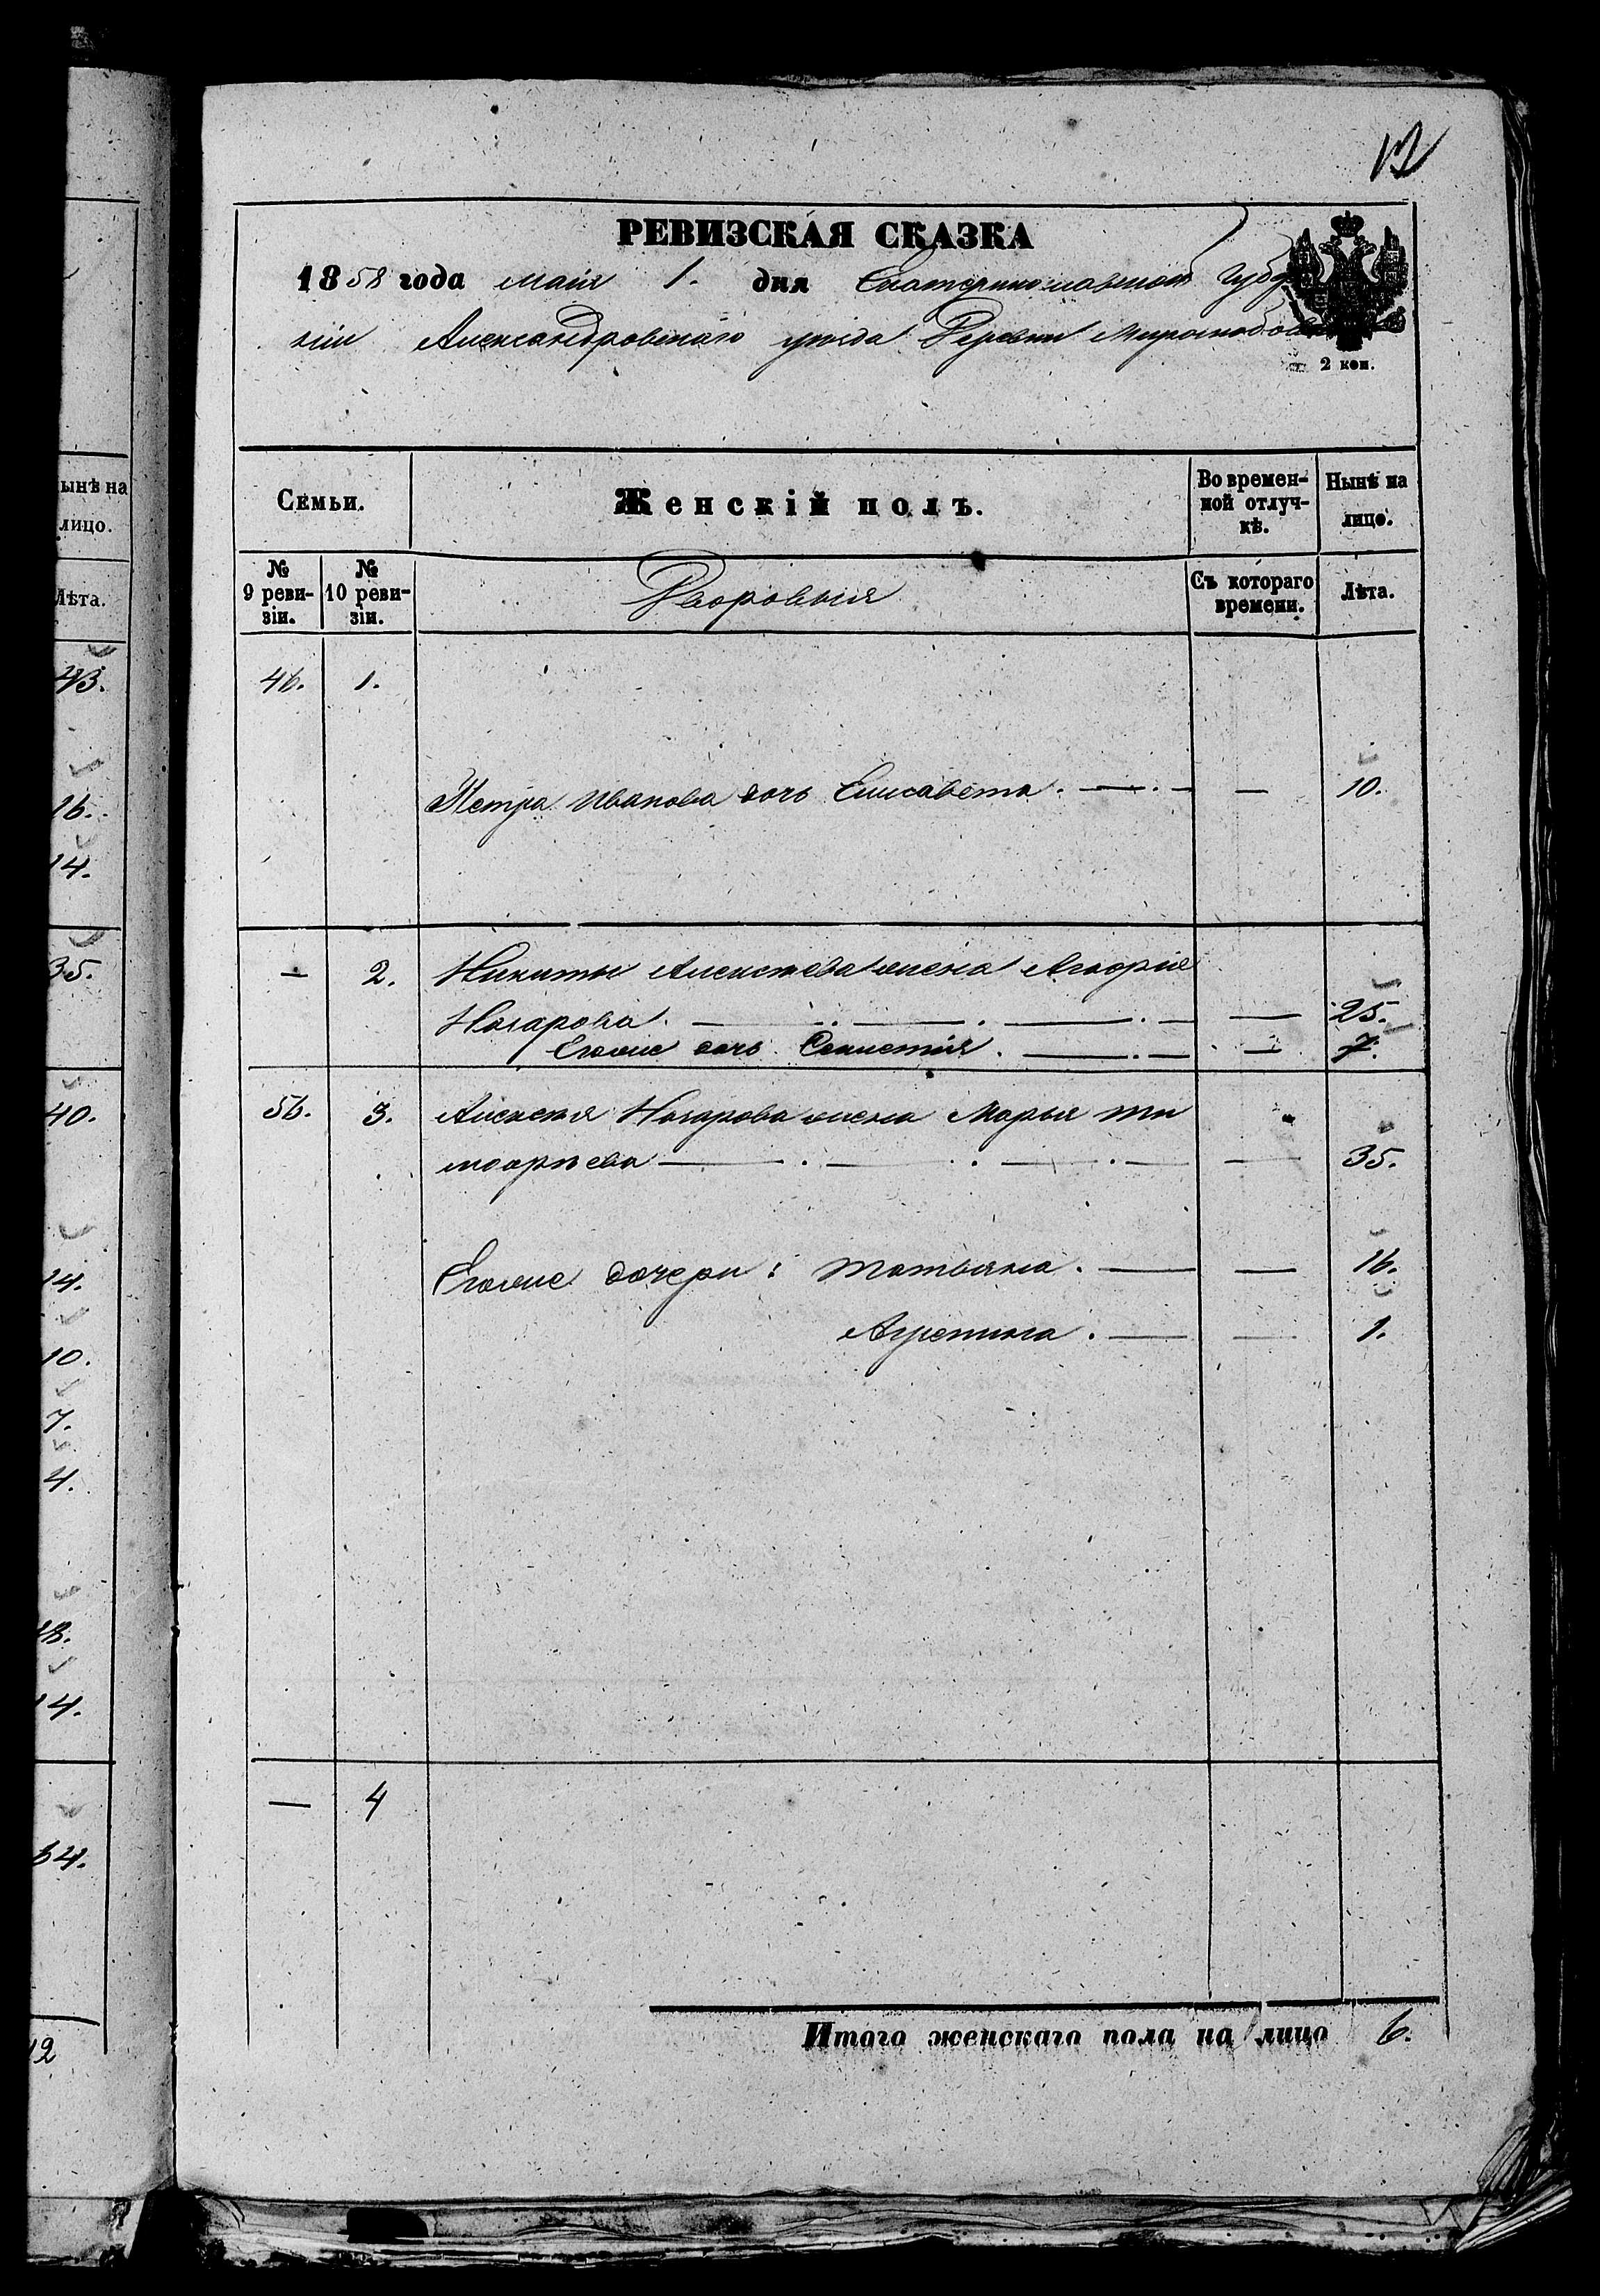 12
РЕВИЗСКАЯ СКАЗКА
1858 года маiя 1. дня Екатеринославской губер
нiи Александровскаго уѣзда Деревни Миролюбовки
2 коп.
ынѣ на
лицо.
Лѣта.
Семьи.
Женскiй полъ.
Во времен-
ной отлуч-
кѣ.
Нынѣ на
лицо.
№
9 реви-
зiи.
№
10 реви-
зiи.
Дворовыя
Съ котораго
времени.
Лѣта.
43.
46. 1.
Петра Иванова дочь Елисавета. — 10.
16.
14.
35.
— 2. Никиты Алексѣева жена
Назарова. — 25.
Егоже дочь — 7.
40.
56. 3. Алексѣя Назарова жена Марья Ти
моѳѣева — 35.
14.
Егоже дочери: Татьяна. — 16.
10.
Агрепина. — 1.
7.
4.
18.
14.
— 4
34.
12
Итого женскаго пола на лицо 6.